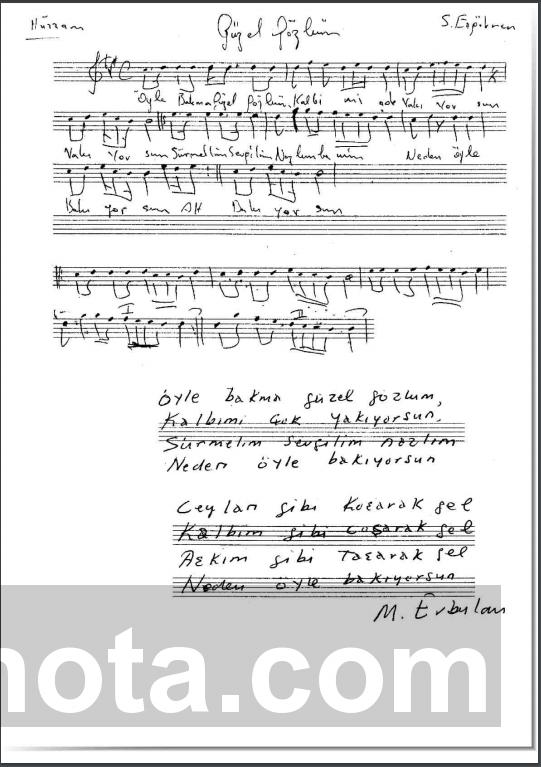 Hüzzam
Güzel Gözlüm
S.
Öyle Bakma güzel gözlüm. Kalbi mi çok Yakı yor sun
Yakı yor sun Sürmelim Sevgilim Nazlım be nim Neden öyle
Bakı yor sun AH Bakı yor sun
I
II
öyle bakma güzel gözlüm,
Kalbimi çok yakıyorsun.
Sürmelim sevgilim nazlım
Neden öyle bakıyorsun
Ceylan gibi koşarak gel
Kalbim gibi coşarak gel
Aşkım gibi taşarak gel
Neden öyle bakıyorsun
M. Erbulan
nota.com